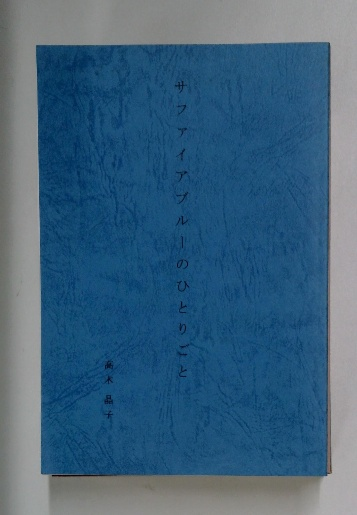 サファイアブルーのひとりごと
高木 晶子